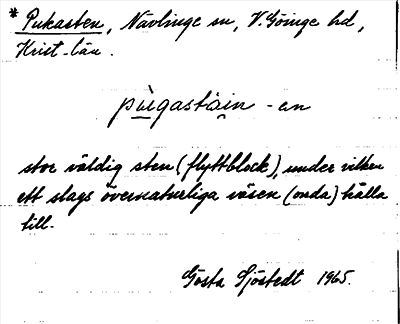 * Pukasten, Nävlinge sn, V. Göinge hd,
Krist. län.
pùgastäin -en
stor väldig sten (flyttblock), under vilken
ett slags övernaturliga väsen (onda) hålla
till.
Gösta Sjöstedt 1965.